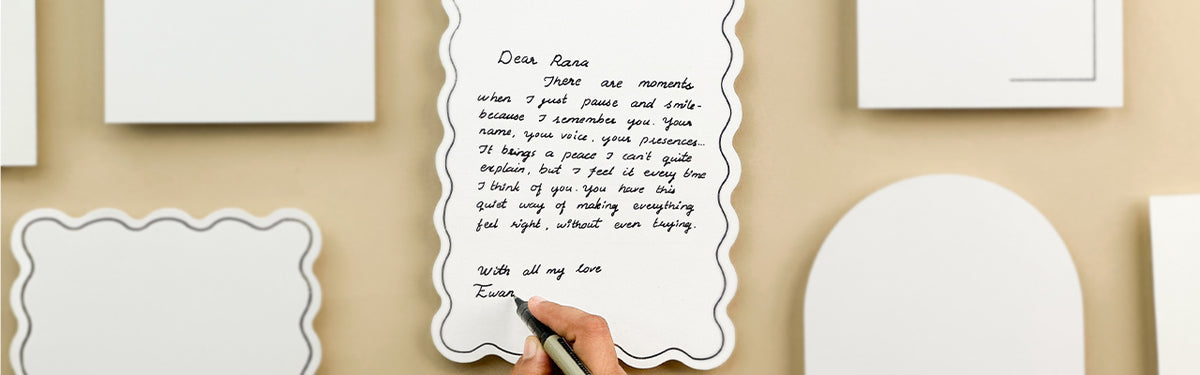 Dear Rana
There are moments
when I just pause and smile-
because I remember you. Your
name, your voice, your presences...
It brings a peace I can't quite
explain, but I feel it every time
I think of you. You have this
quiet way of making everything
feel right, without even trying.
With all my love
Ewan